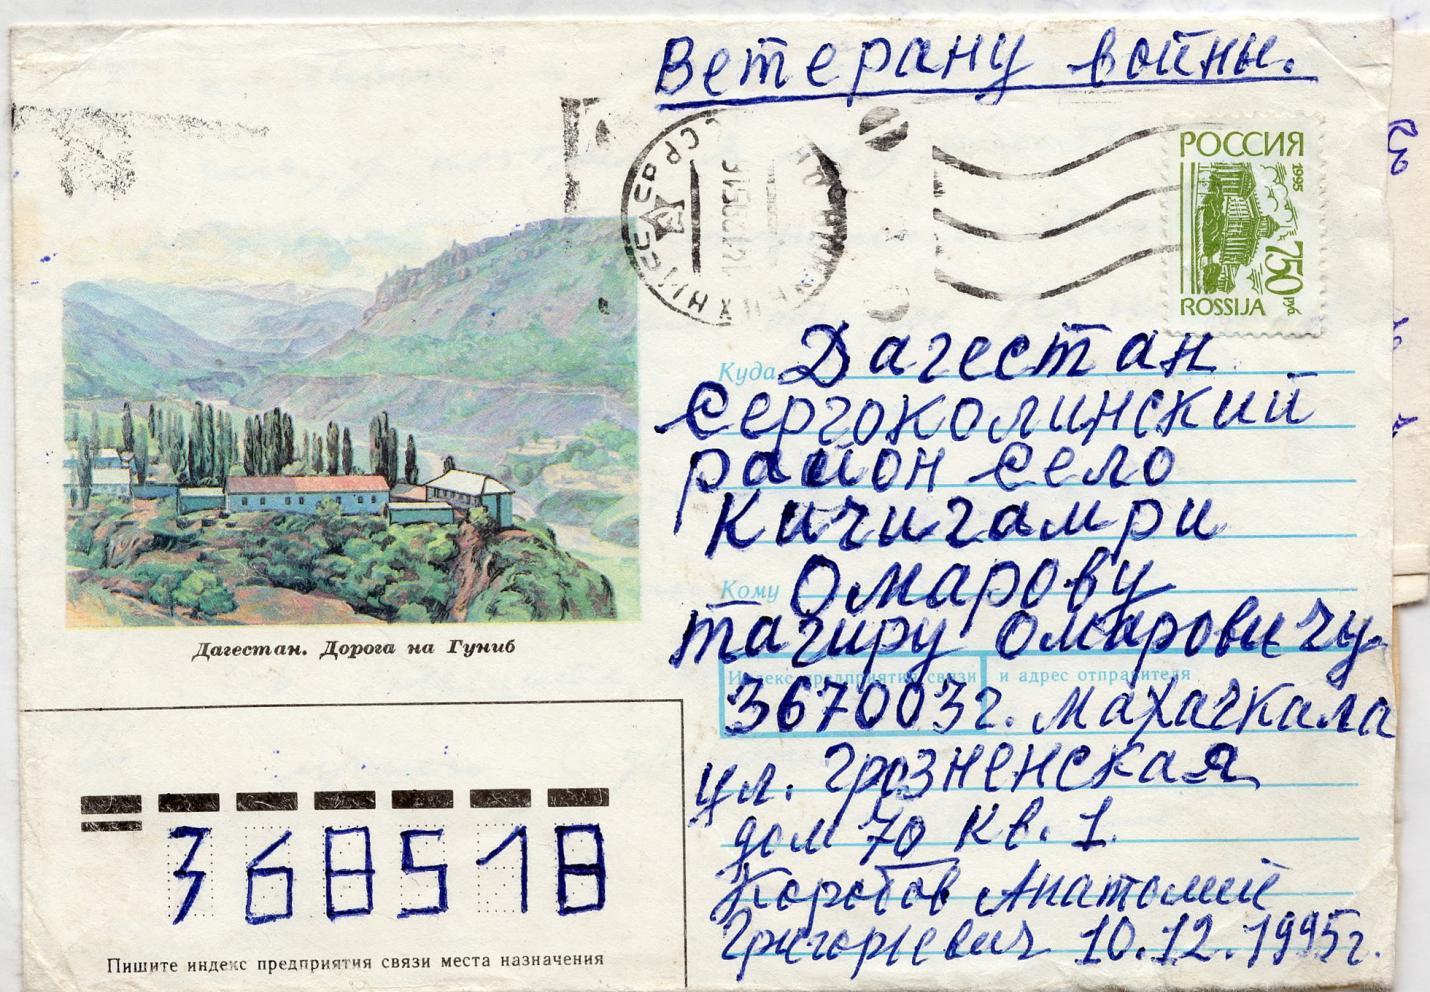 Ветерану войны.
РОССИЯ
1995
750 руб
ROSSIJA
Куда Дагестан
Сергоколинский
район село
Кичигамри
Кому Омарову
тагиру омаровичу.
Индекс предприятия связи и адрес отправителя
367003 г. Махачкала
ул. грозненская
дом 70 кв. 1.
Коробов Анатолий
Григорьевич 10.12.1995г.
Дагестан. Дорога на Гуниб
368518
Пишите индекс предприятия связи места назначения